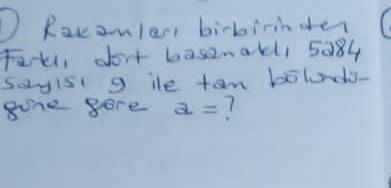 1) Rakamları birbirinden
farklı, dört basamaklı 5a84
sayısı 9 ile tam bölündü-
ğüne göre a = ?